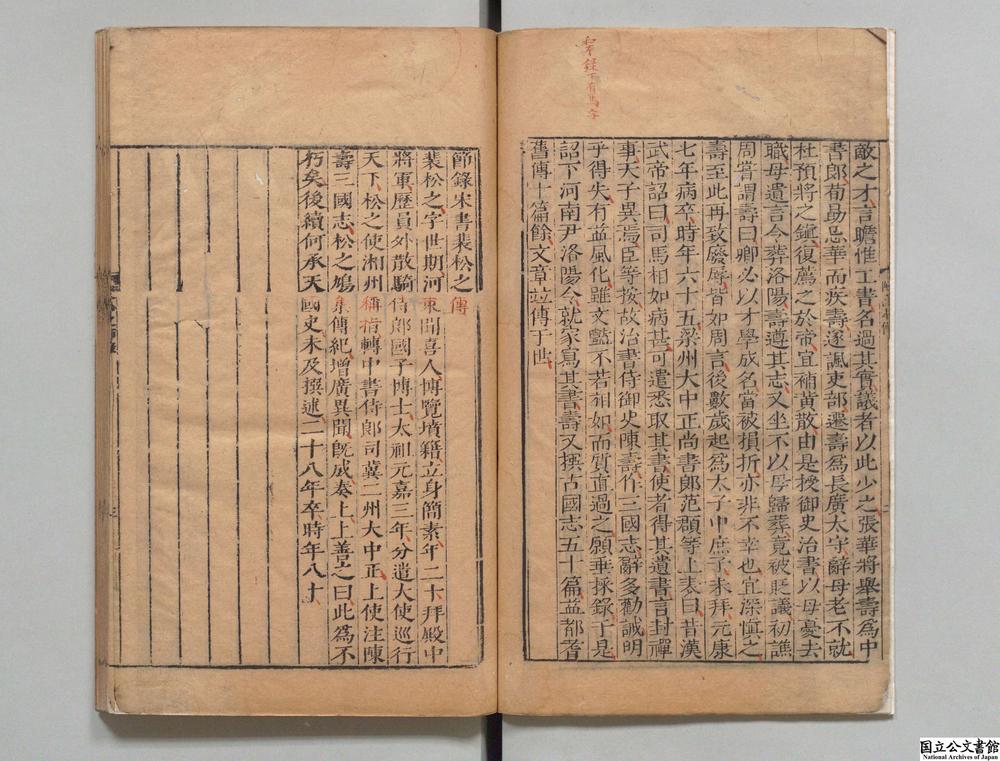 敵之才言瞻惟工書名過其實議者以此少之張華將舉壽爲中
書郎荀勖忌華而疾壽遂諷吏部遷壽爲長廣太守辭母老不就
杜預將之鎮復薦之於帝宜補黃散由是授御史治書以母憂去
職母遺言令葬洛陽壽遵其志又坐不以母歸葬竟被貶議初譙
周嘗謂壽曰卿必以才學成名當被損折亦非不幸也宜深愼之
壽至此再致廢辱皆如周言後數歲起爲太子中庶子未拜元康
七年病卒時年六十五梁州大中正尚書郎范頵等上表曰昔漢
武帝詔曰司馬相如病甚可遣悉取其書使者得其遺書言封禪
事天子異焉臣等按故治書侍御史陳壽作三國志辭多勸誡明
乎得失有益風化雖文艷不若相如而質直過之願垂採錄于是
詔下河南尹洛陽令就家寫其書壽又撰古國志五十篇益都耆
舊傳十篇餘文章竝傳于世
節錄宋書裴松之傳
裴松之字世期河東聞喜人博覽墳籍立身簡素年二十拜殿中
將軍歷員外散騎侍郎國子博士太祖元嘉三年分遣大使巡行
天下松之使湘州稱指轉中書侍郎司冀二州大中正上使注陳
壽三國志松之鳩集傳紀增廣異聞旣成奏上上善之曰此爲不
朽矣後續何承天國史未及撰述二十八年卒時年八十
三
国立公文書館
National Archives of Japan